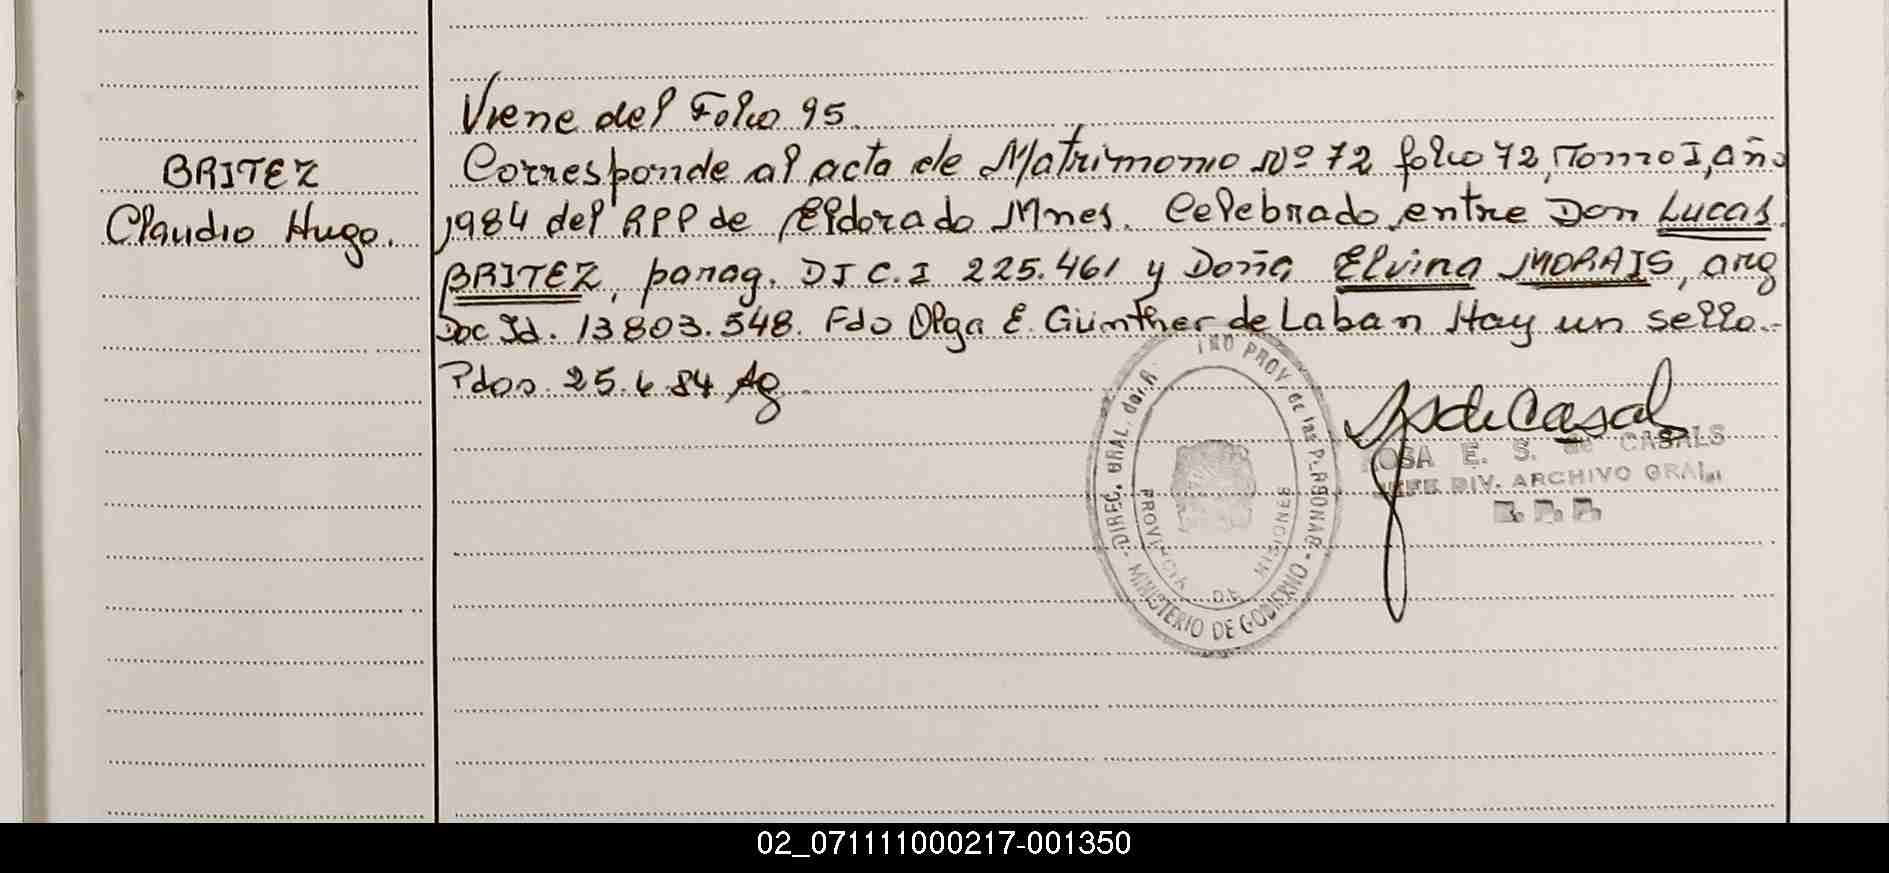 Viene del Folio 95.
BRITEZ
Claudio Hugo.
Corresponde al acta de Matrimonio Nº 72 folio 72, Tomo I, año
1984 del RPP de Eldorado Mnes. Celebrado entre Don Lucas
BRITEZ, parag. DJ C.I 225.461 y Doña Elvina MORAIS, arg
Doc Id. 13803.548. Fdo Olga E. Günther de Laban Hay un sello.-
Pdas. 25.6.84 Ag
DIREC. GRAL. del R PROV. de las PERSONAS
MINISTERIO DE GOBIERNO
PROVINCIA DE MISIONES
de Casals
ROSA E. S. de CASALS
JEFE DIV. ARCHIVO GRAL.
R. P. P.
02_071111000217-001350